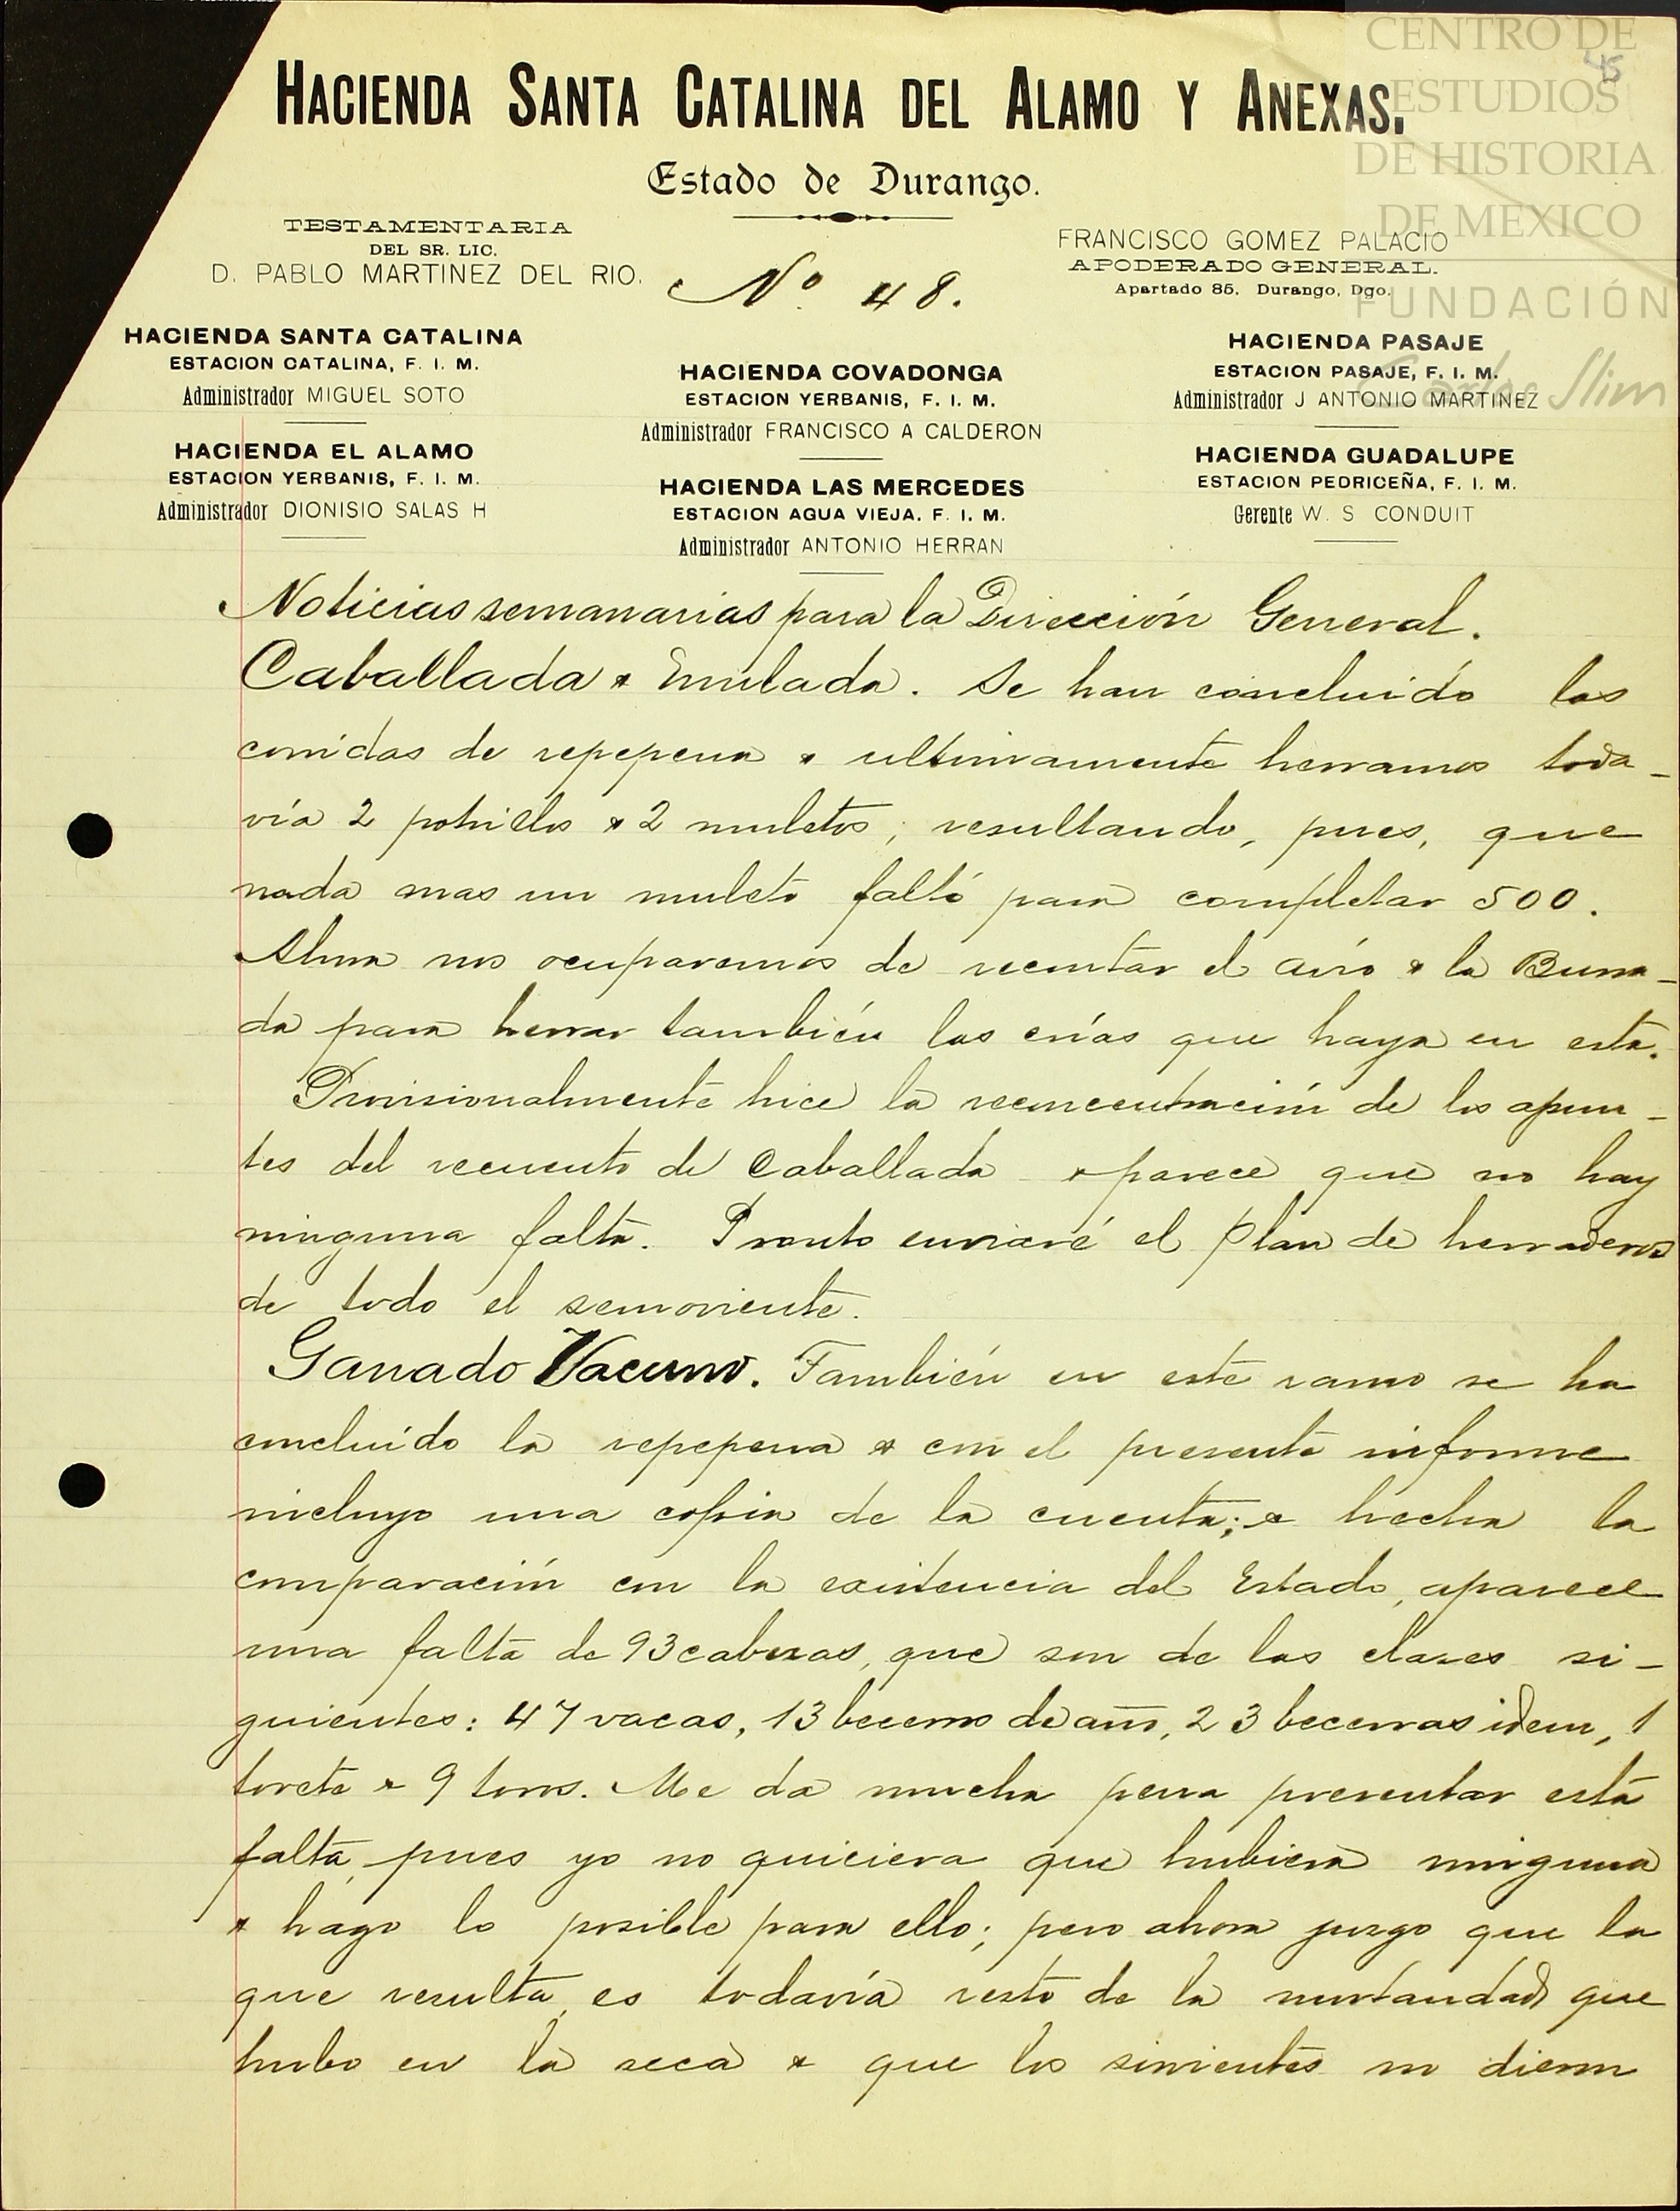 CENTRO DE
ESTUDIOS
DE HISTORIA
DE MEXICO
FUNDACIÓN
Carlos Slim
45
HACIENDA SANTA CATALINA DEL ALAMO Y ANEXAS.
Estado de Durango.
TESTAMENTARIA
DEL SR. LIC.
D. PABLO MARTINEZ DEL RIO.
Nº 48.
FRANCISCO GOMEZ PALACIO
APODERADO GENERAL.
Apartado 85. Durango, Dgo.
HACIENDA SANTA CATALINA
ESTACION CATALINA, F. I. M.
Administrador MIGUEL SOTO
HACIENDA EL ALAMO
ESTACION YERBANIS, F. I. M.
Administrador DIONISIO SALAS H
HACIENDA COVADONGA
ESTACION YERBANIS, F. I. M.
Administrador FRANCISCO A CALDERON
HACIENDA LAS MERCEDES
ESTACION AGUA VIEJA. F. I. M.
Administrador ANTONIO HERRAN
HACIENDA PASAJE
ESTACION PASAJE, F. I. M.
Administrador J ANTONIO MARTINEZ
HACIENDA GUADALUPE
ESTACION PEDRICEÑA, F. I. M.
Gerente W. S CONDUIT
Noticias semanarias para la Dirección General.
Caballada & mulada. Se han concluido las
corridas de repepena & ultimamente herramos toda-
vía 2 potrillos & 2 muletos; resultando, pues, que
nada mas un muleto faltó para completar 500.
Ahora nos ocuparemos de recontar el avío & la Burra-
da para herrar también las crías que haya en esta.
Provisionalmente hice la reconcentración de los apun-
tes del recuento de Caballada & parece que no hay
ninguna falta. Pronto enviaré el Plan de herraderos
de todo el semoviente.
Ganado Vacuno. También en este ramo se ha
concluído la repepena & con el presente informe
incluyo una copia de la cuenta; & hecha la
comparación con la existencia del Estado, aparece
una falta de 93 cabezas, que son de las clases si-
guientes: 47 vacas, 13 becerros de año, 23 becerras idem, 1
torete & 9 toros. Me da mucha pena presentar esta
falta, pues yo no quiciera que hubiera ninguna
& hago lo posible para ello; pero ahora juzgo que la
que resulta, es todavía resto de la mortandad que
hubo en la seca & que los sirvientes no dieron